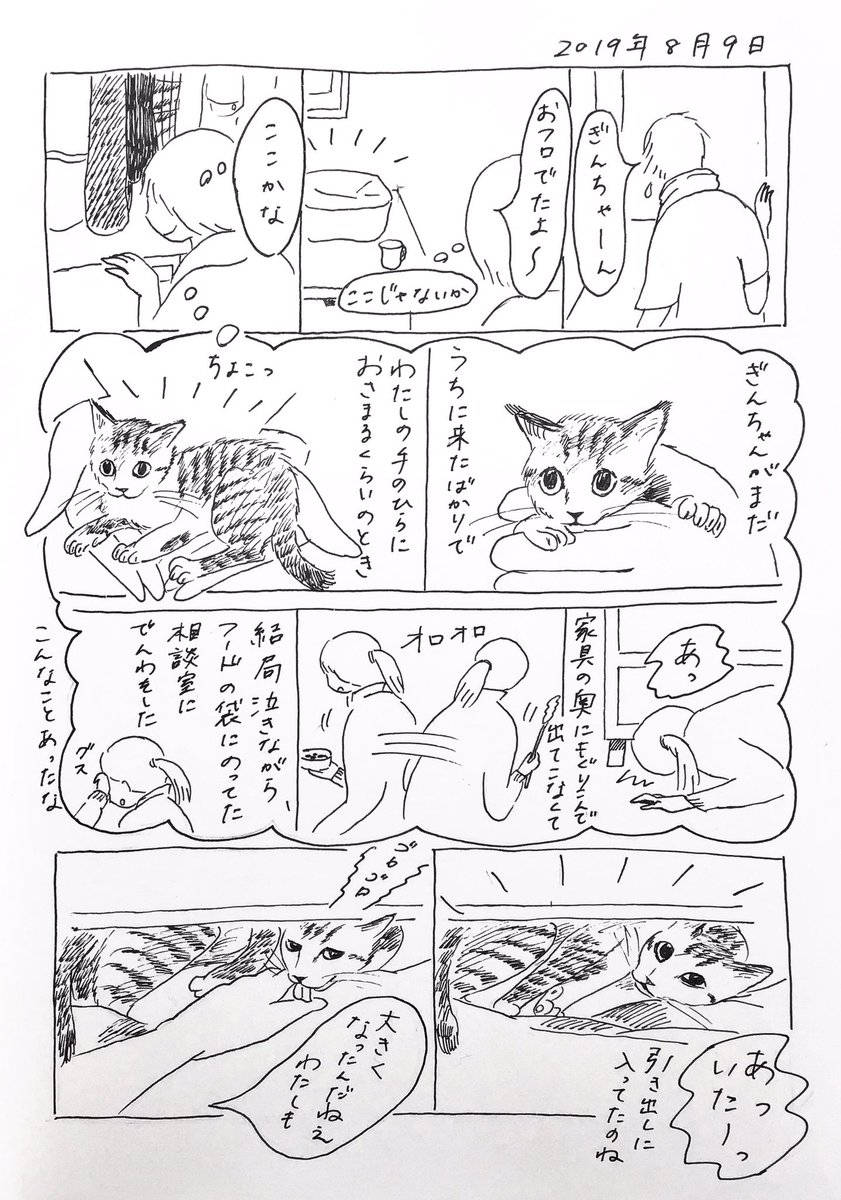 2019年8月9日
ぎんちゃーん
おフロでたよ〜
ここじゃないか
ここかな
ぎんちゃんがまだ
うちに来たばかりで
わたしの手のひらに
おさまるくらいのとき
ちょこっ
あっ
家具の奥にもぐりこんで
出てこなくて
オロオロ
結局泣きながら、
フードの袋にのってた
相談室に
でんわをした
グス
こんなことあったな
あっ
いたーっ
引き出しに
入ってたのね
ゴロゴロ
大きく
なったんだねぇ
わたしも